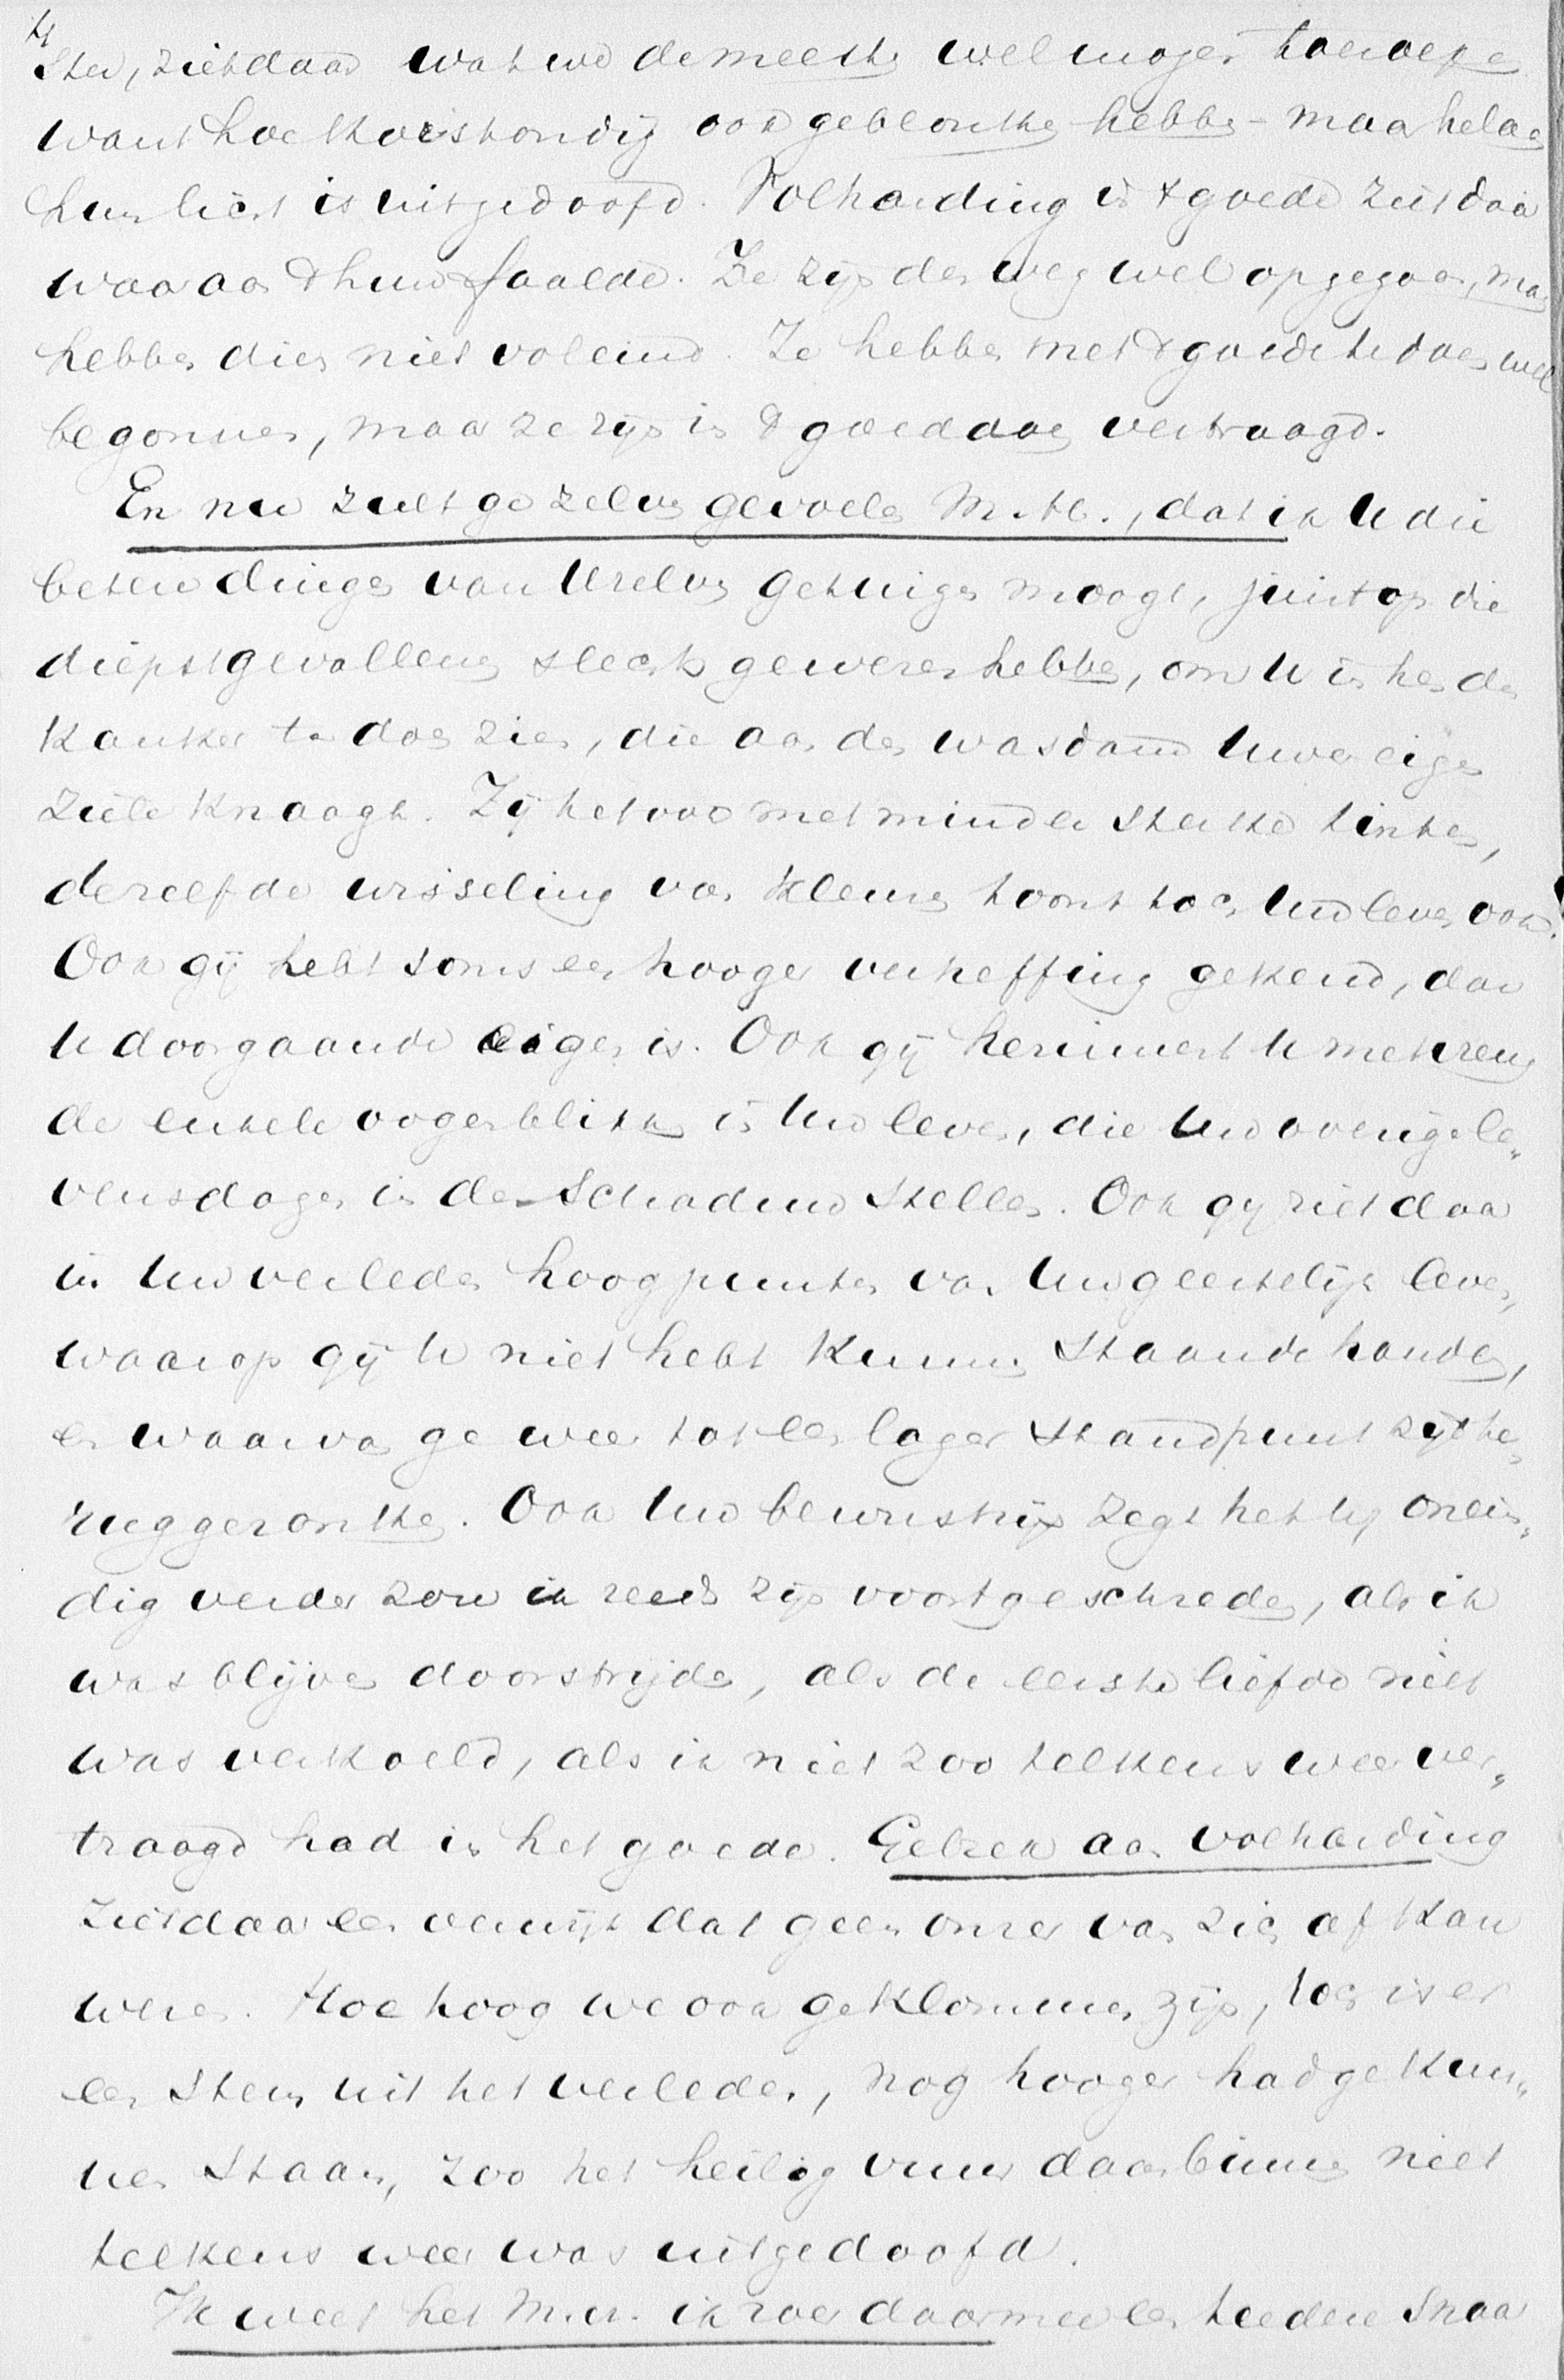 4
ster, ziet daar wat we de meesten wel mogen toeroepen
want hoe kortstondig ook geblonken hebben - maar helaas
hun licht is uitgedoofd. Volharding in 't goede ziet daar
waar aan 't hun faalde. Ze zijn den weg wel opgegaan, maar
hebben dien niet voleind. Ze hebben met 't goede te doen wel
begonnen, maar ze zijn in 't goeddoen vertraagd.
En nu zult ge zelven gevoelen M. H., dat ik U die
beter dingen van Uzelven getuigen moogt, juist op die
diepstgevallenen slechts gewezen hebbe, om U in hen den
kanker te doen zien, die aan den wasdom Uwer eigen
ziele knaagt. Zij het ook met minder sterke tinten,
dezelfde wisseling van kleuren toont toch Uw leven ook.
Ook gij hebt soms een hooger verheffing gekend, dan
U doorgaande eigen is. Ook gij herinnert U met vreugd
de enkele oogenblikken in Uw leven, die Uw overige le„
vensdagen in de schaduw stellen. Ook gij ziet daar
in Uw verleden hoogpunten van Uw geestelijk leven,
waarop gij U niet hebt kunnen staande houden,
en waarvan ge weer tot een lager standpunt zijt te„
ruggezonken. Ook Uw bewustzijn zegt het U, onein„
dig verder zou ik reeds zijn voortgeschreden, als ik
was blijven doorstrijden, als de eerste liefde niet
was verkoeld, als ik niet zoo telkens weer ver„
traagd had in het goede. Gebrek aan volharding
ziet daar een verwijt dat geen onzer van zich af kan
weren. Hoe hoog we ook geklommen zijn, toch is er
een stem uit het verleden, nog hooger had ge kun„
nen staan, zoo het heilig vuur daarbinnen niet
telkens weer was uitgedoofd.
Ik weet het M. H. ik roer daarmee een teedere snaar